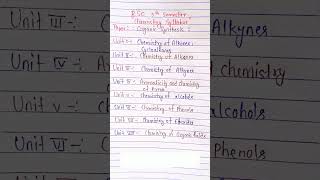 B.SC 4th Semester
Chemistry Syllabus
Paper:- Organic Synthesis :
Unit I:- Chemistry of Alkanes &
Unit II :- Chemistry of Alkenes
Unit III :- Chemistry of Alkynes
Unit IV :- Aromaticity and Chemistry
Unit V :- Chemistry of alcohols
Unit VI :- Chemistry of Phenols
Unit VII :- Chemistry of
Unit VIII :- Chemistry of Organic
Unit III :-
Unit IV :-
Unit V :- C
Unit VI :- C
Alkynes
Chemistry
alcohols
Phenols